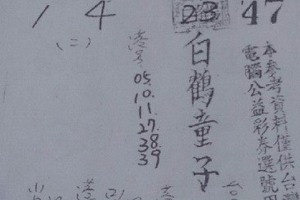 1 4
23
47
(二)
港号
05.
10.
11.
27.
38.
39
白鶴童子
本參考資料僅供台灣
電腦公益彩券選號用